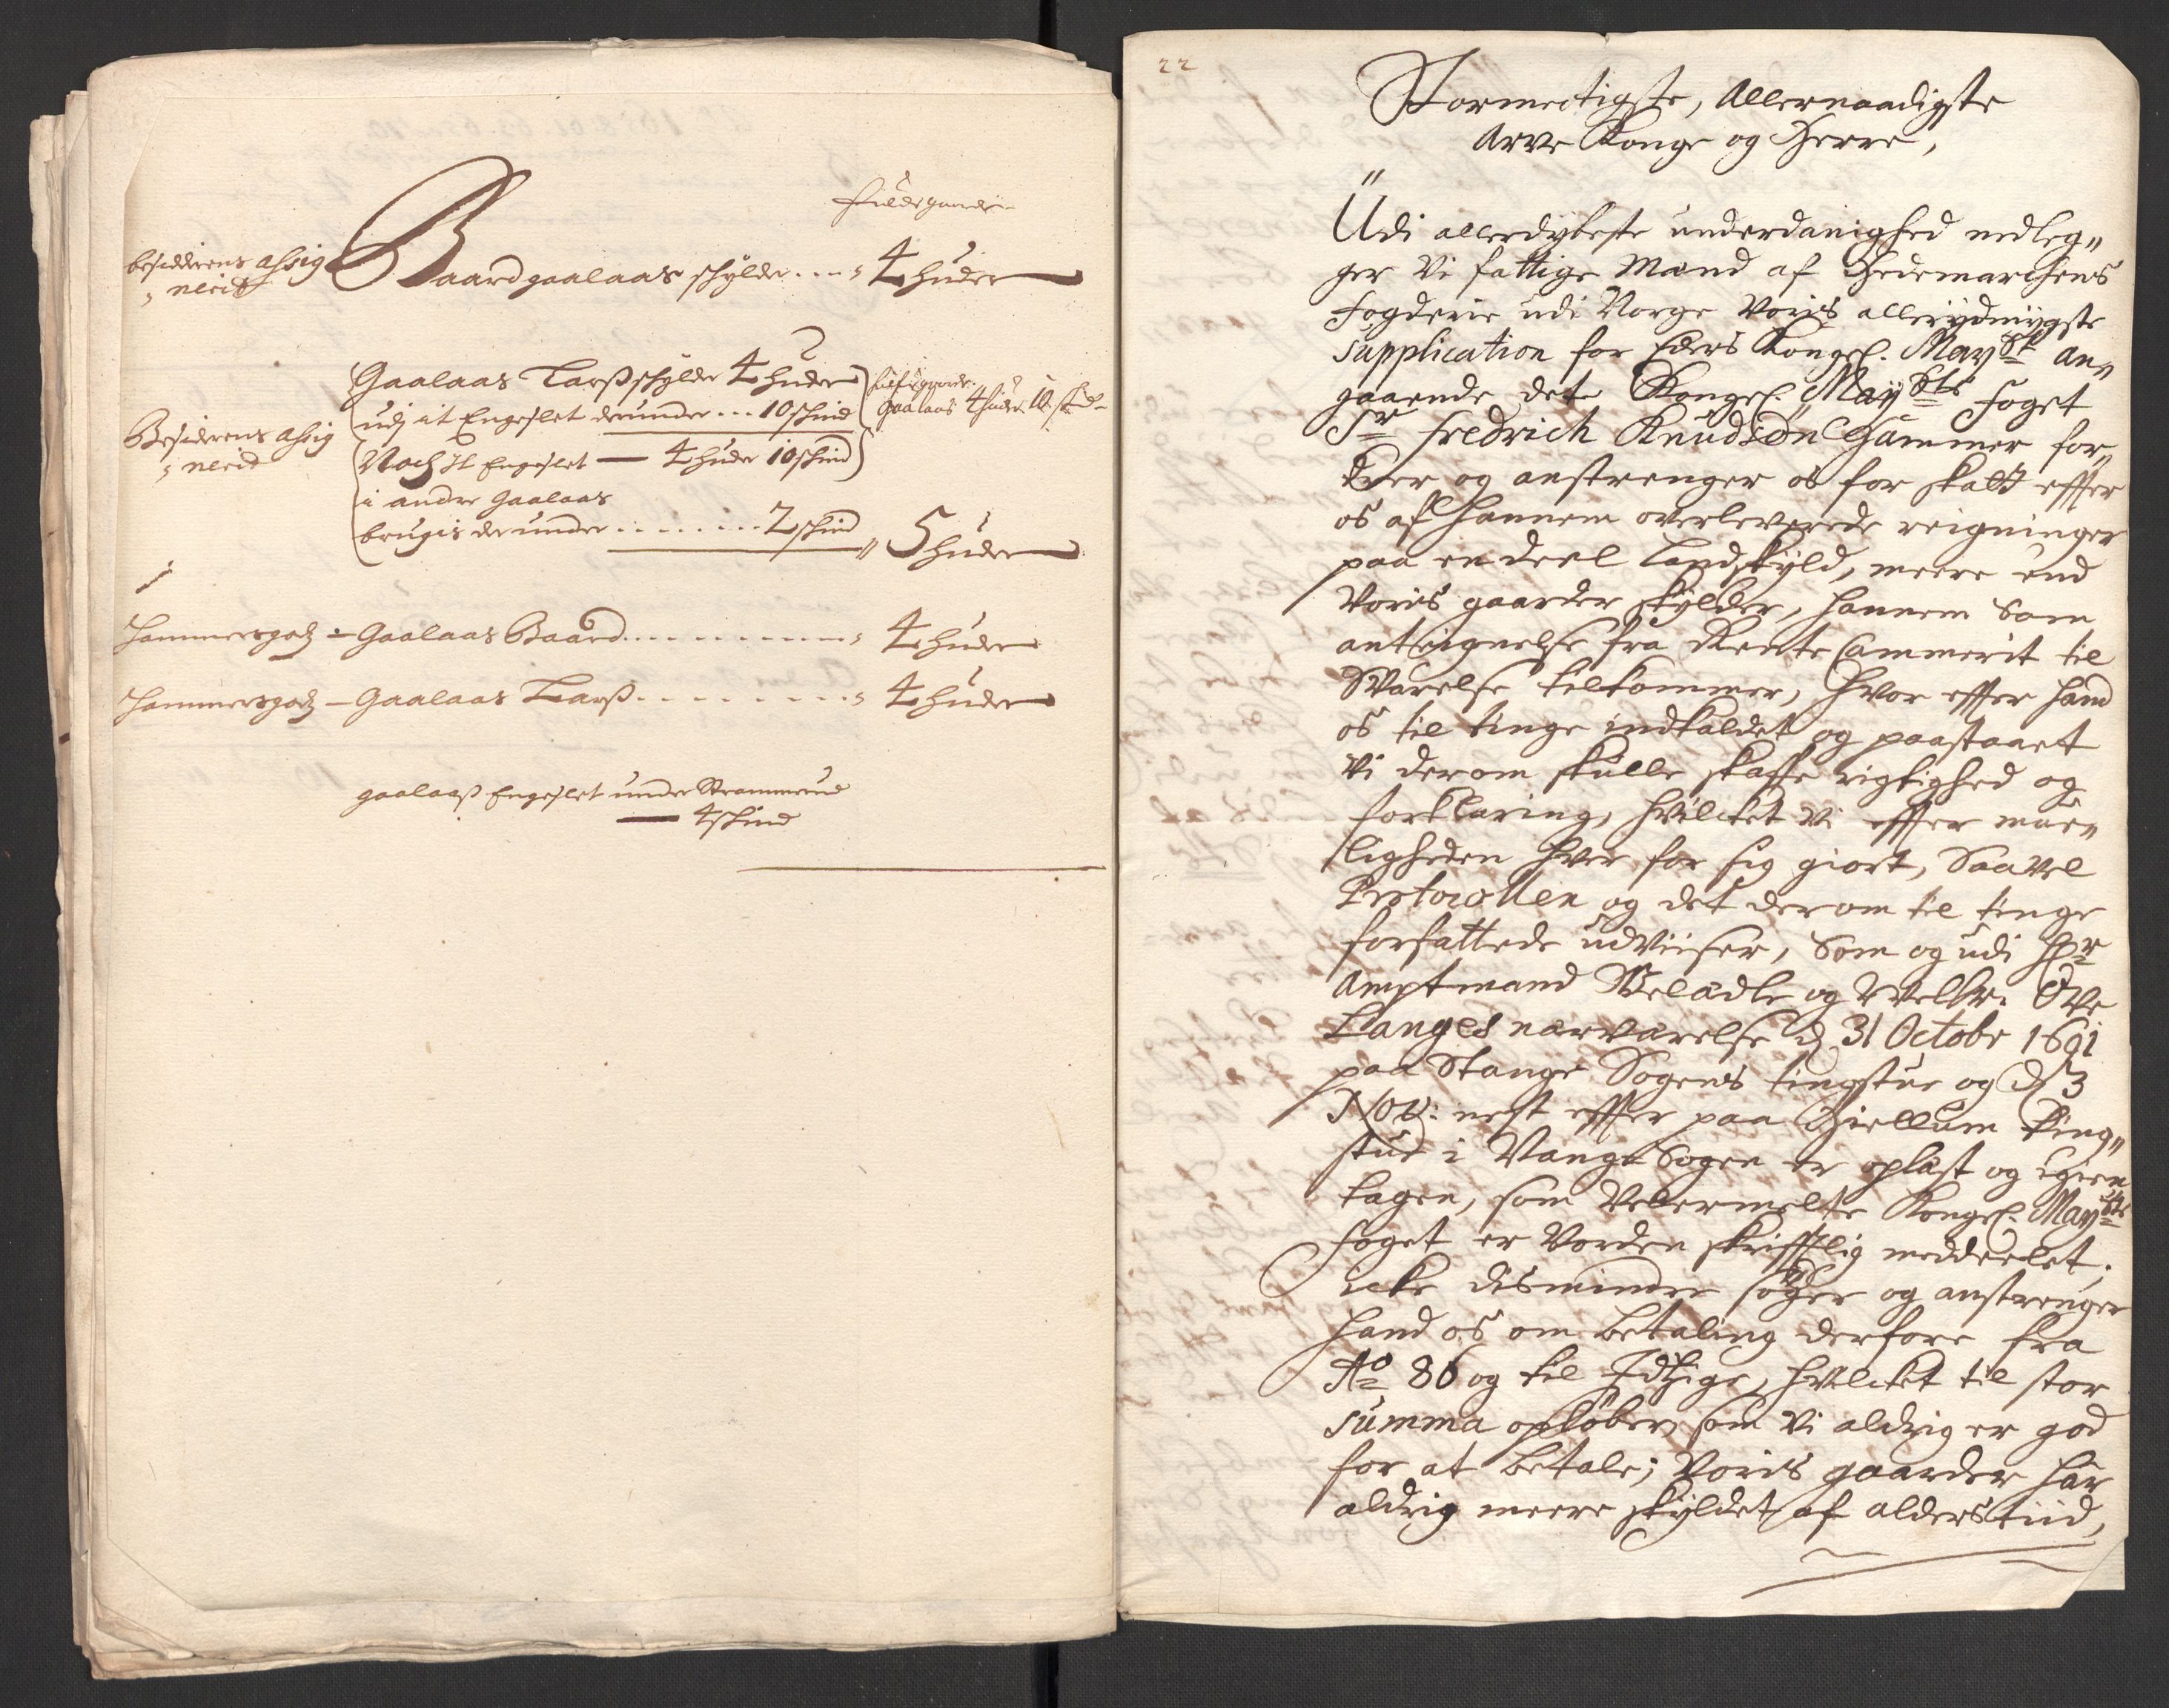 fuldegaarde
besidderens ahsig
neridt
Baardgaalaas schylder . . . 4 huder
Gaalaas Larß schylder 4 huder
udj it Engeslet derunder . . . 10 schind
Noch It Engeslet — 4 huder 10 schind
i andre Gaalaas
brugis derunder . . . . . . . . 2 schind
5 huder
gaalaas 4 huder 10 skind
Besiderens ahsig
nerid
Hammersgodz - Gaalaas Baard . . . . . . . . . . 4 huder
Hammersgodz - Gaalaas Larß . . . . . . . . . 4 huder
gaalaaß Engeslet under Strammerud
— 4 schind
22
Stormectigste, Allernaadigste
Arve Konge og Herre,
Udi allerdybeste underdanighed nedleg„
ger Vi fattige Mænd af Hedemarchens
Fogderie udi Norge Voris allerydmygste
Supplication for Eders Kongel. Mayst an„
gaaende det Kongel. Maysts Foget
Sr Fredrich Knudsøn Hammer for„
drer og anstrenger os for skatt effter
os af hannem overleverede reigninger
paa en deel Landskyld, meere end
Voris gaarder skylder, hannem Som
anteignelse fra Rente Cammerit til
Svarelse tilkommer, Hvor effter hand
os til tinge indkaldet og paastaaet
Vi derom skulle skaffe rigtighed og
forklaring, hvilcket Vi effter mue„
ligheden hver for sig giort, Saavel
Protocollen og det derom til tinge
forfattede udviiser, Som og udi Hr
Amptmand Velædle og Velbr. Ove
Langes nærværelse d. 31 Octobr 1691
paa Stange Sogens tingstue og d. 3
Nov: nest effter paa Hiellum ting„
stue i Vangs Sogen er oplæst og igien
tagen, som Velermelte Kongel. Mayts
Foget er Vorden skrifftlig meddeelet;
icke dismindre søger og anstrenger
hand os om betaling derfore fra
Ao 86 og til Idtzige, hvilcket til stor
Summa opløber, som Vi aldrig er god
for at betale; Voris gaarder har
aldrig meere skyldet af alders tiid,